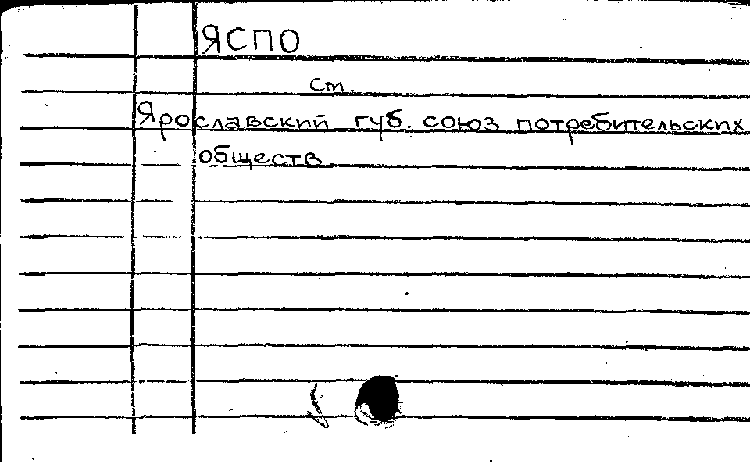 ЯСПО
см.
Ярославский губ. союз потребительских
обществ